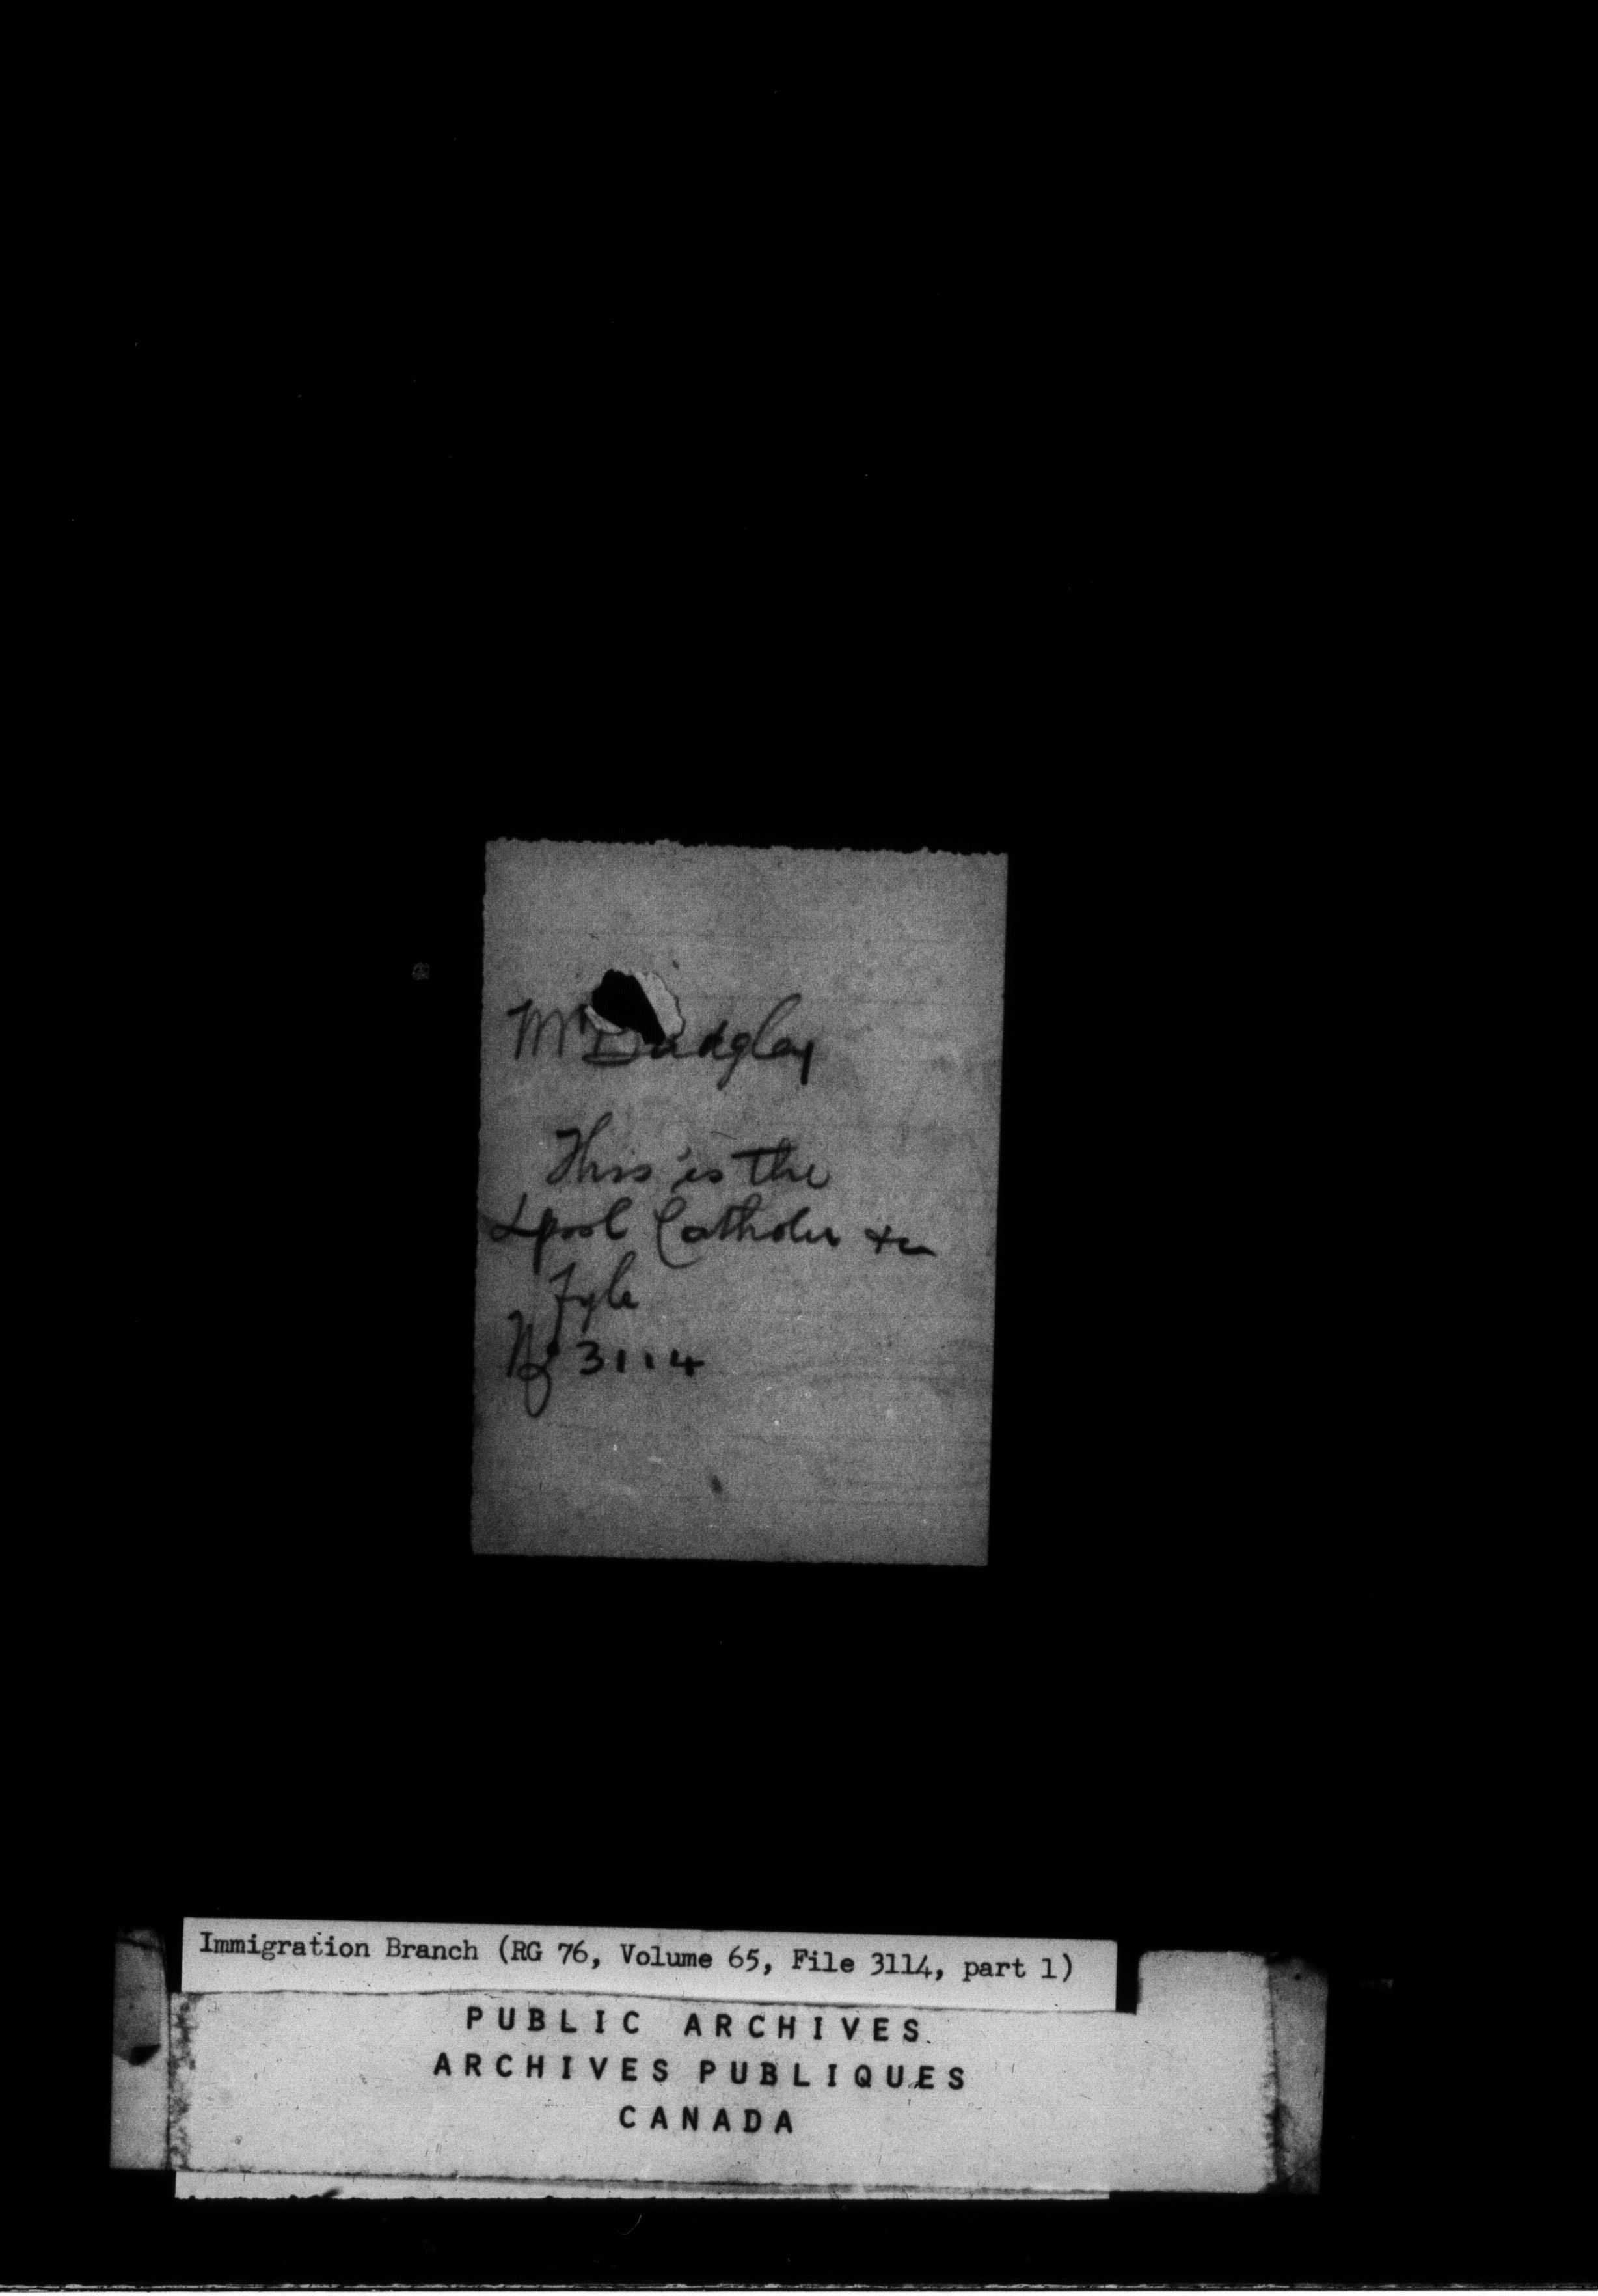 Mr Badgley
This is the
Lpool Catholic &c
Fyle
No 3114
Immigration Branch (RG 76, Volume 65, File 3114, part 1)
PUBLIC ARCHIVES
ARCHIVES PUBLIQUES
CANADA